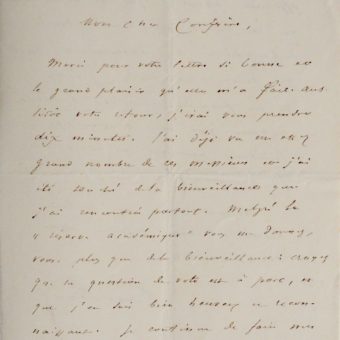 Mon cher Confrère,
Merci pour votre lettre si bonne et
le grand plaisir qu'elle m'a fait. Aus
sitôt votre retour, j'irai vous prendre
dix minutes. J'ai déjà vu un assez
grand nombre de ces messieurs et j'ai
été touché de la bienveillance que
j'ai rencontrée partout. Malgré la
"réserve académique" vous me donnez,
vous, plus que de la bienveillance: croyez
que la question de vote est à part, et
que j'en suis bien heureux et recon-
naissant. Je continue de faire mes